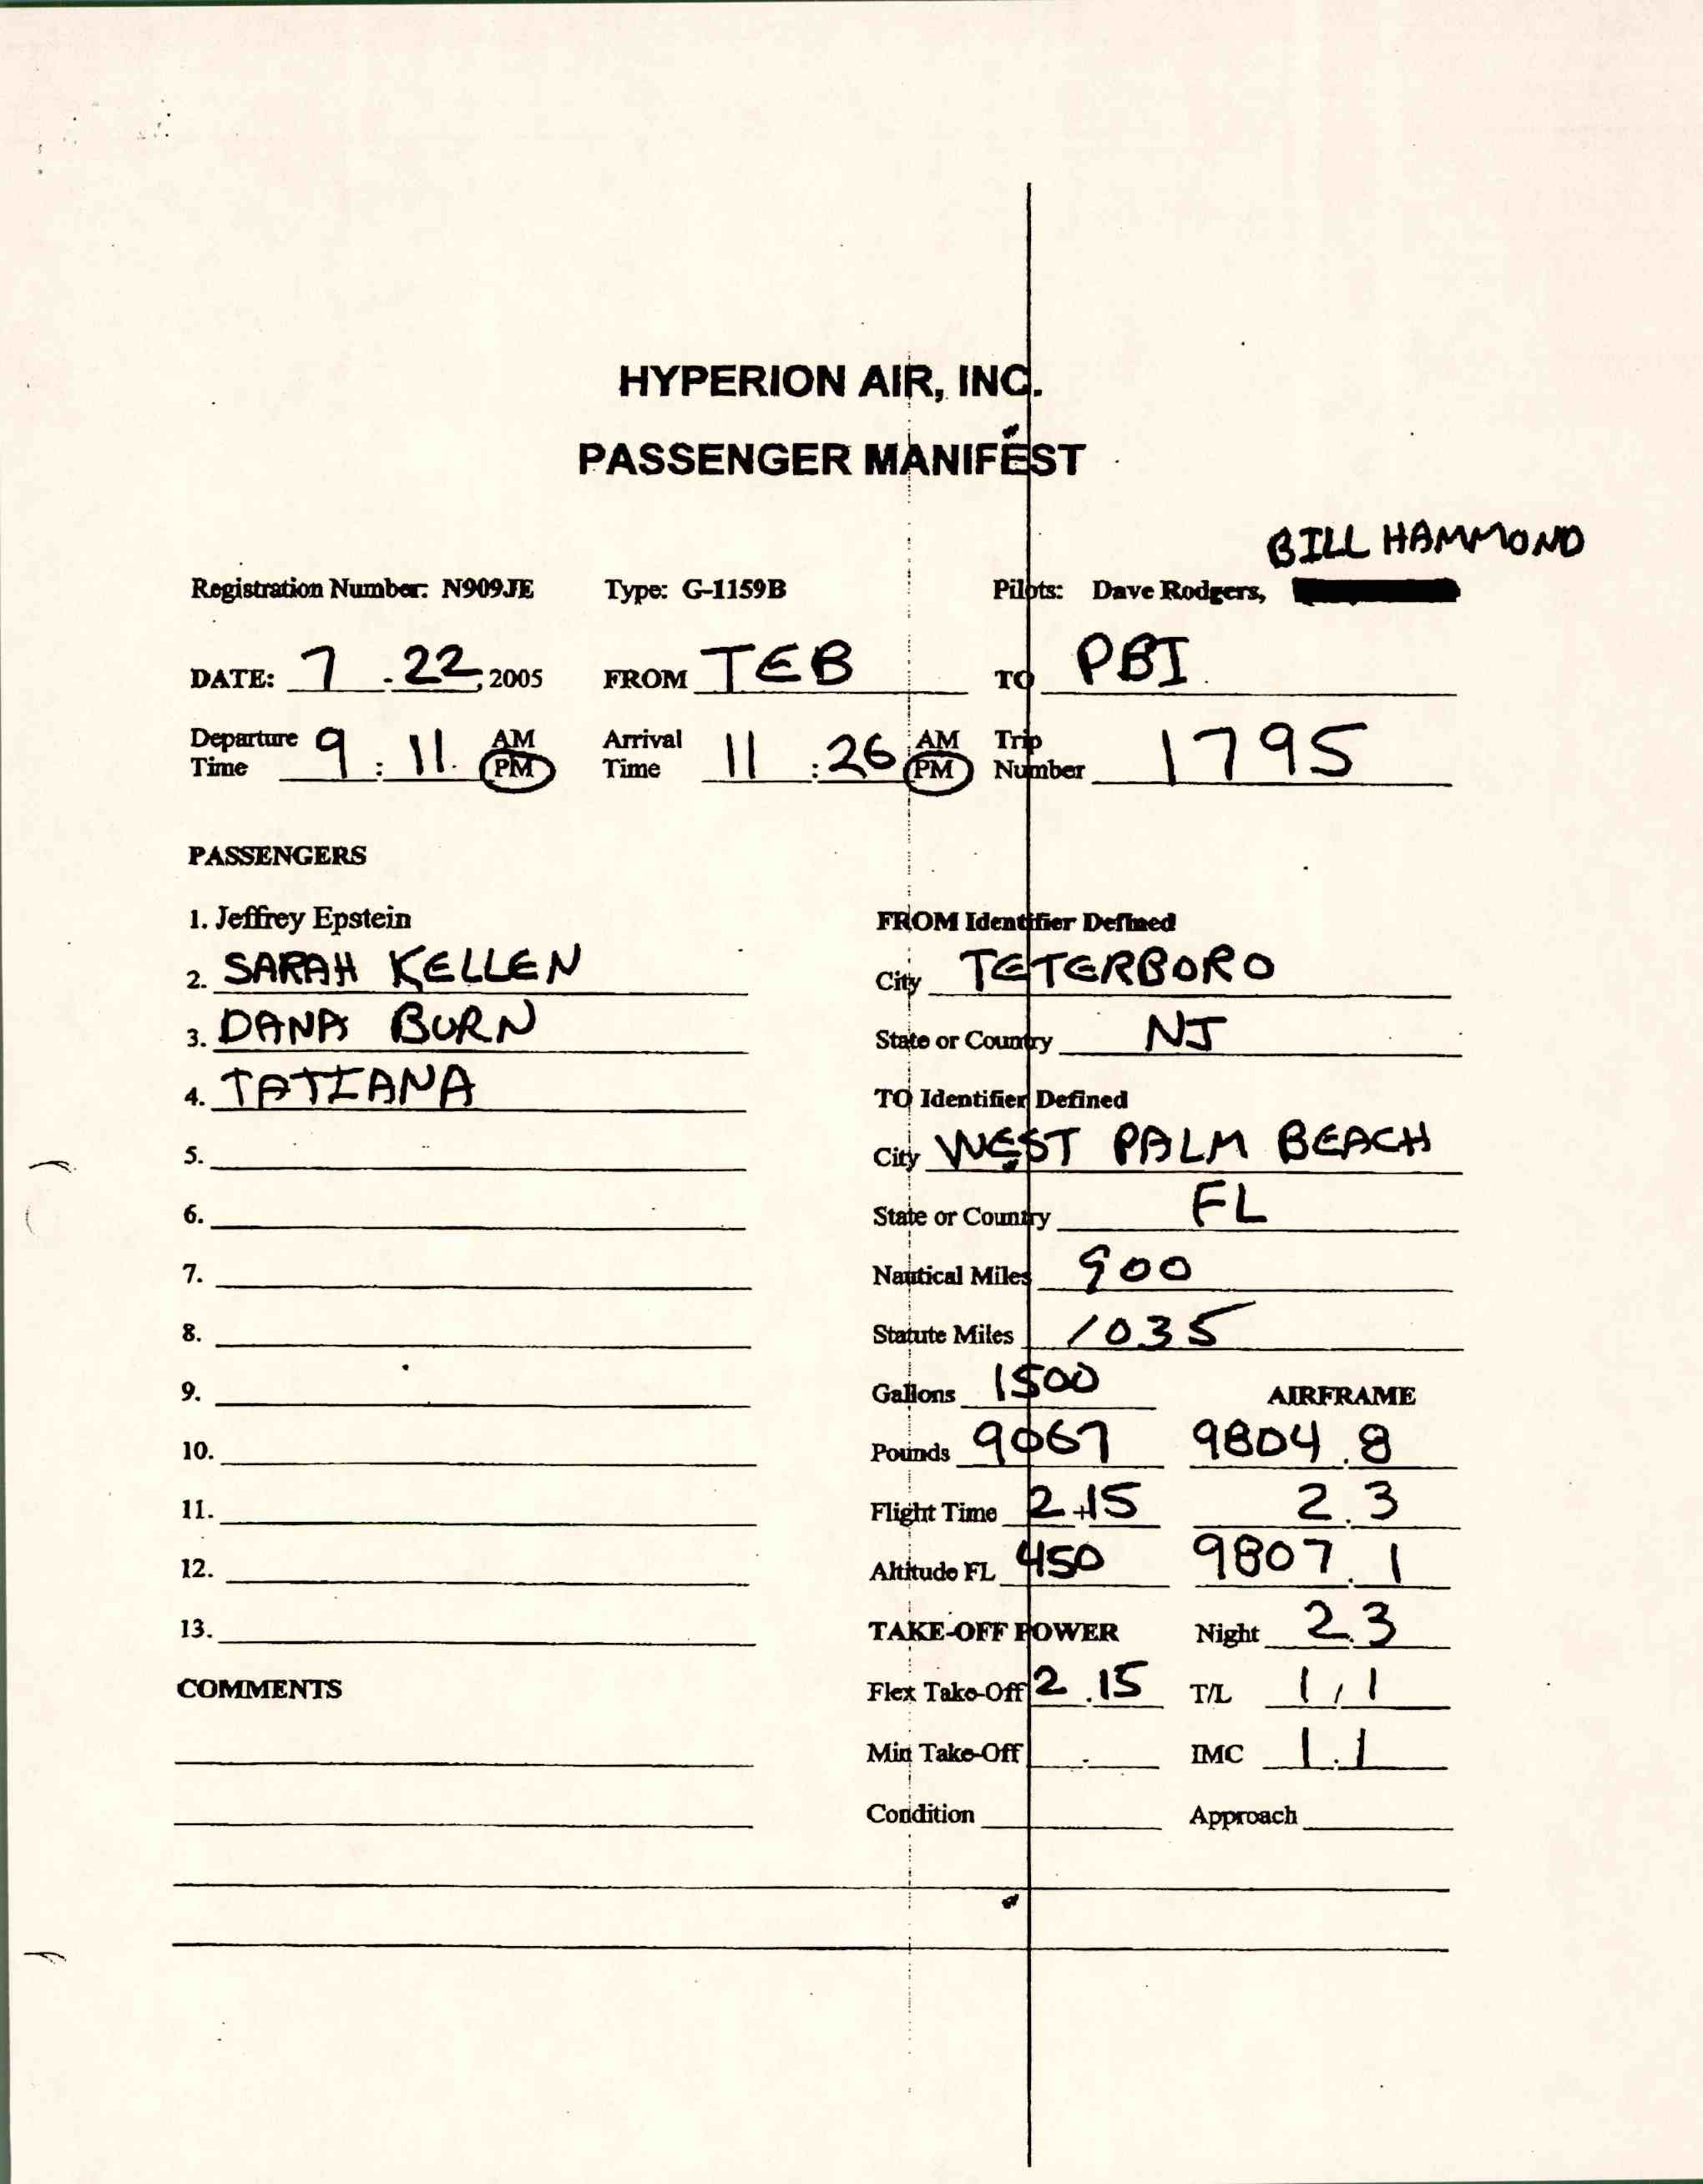 HYPERION AIR, INC.
PASSENGER MANIFEST
BILL HAMMOND
Registration Number: N909JE Type: G-1159B Pilots: Dave Rodgers,
DATE: 7 - 22, 2005 FROM TEB TO PBI
Departure Time 9 : 11 AM PM Arrival Time 11 : 26 AM PM Trip Number 1795
PASSENGERS
1. Jeffrey Epstein FROM Identifier Defined
2. SARAH KELLEN City TETERBORO
3. DANA BURN State or Country NJ
4. TATIANA TO Identifier Defined
5. City WEST PALM BEACH
6. State or Country FL
7. Nautical Miles 900
8. Statute Miles 1035
9. Gallons 1500 AIRFRAME
10. Pounds 9067 9804.8
11. Flight Time 2+15 2.3
12. Altitude FL 450 9807.1
13. TAKE-OFF POWER Night 2.3
COMMENTS Flex Take-Off 2.15 T/L 1/1
Min Take-Off . IMC 1.1
Condition Approach